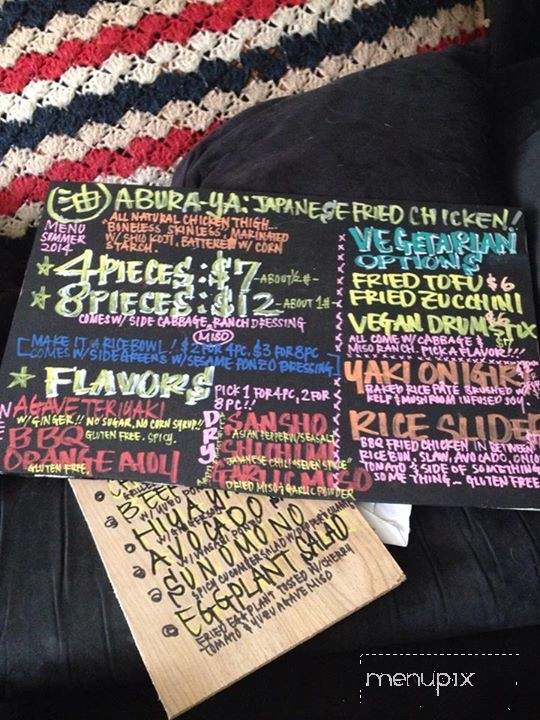 油 ABURA-YA: JAPANESE FRIED CHICKEN!
MENU
SUMMER
2014
ALL NATURAL CHICKEN THIGH...
BONELESS SKINLESS, MARINATED
W/ SHIO KOJI, BATTERED W/ CORN
STARCH.
4 PIECES: $7 -ABOUT ½ #-
8 PIECES: $12 -ABOUT 1#-
COMES W/ SIDE CABBAGE, RANCH DRESSING
MISO
MAKE IT A RICE BOWL! $2 FOR 4PC, $3 FOR 8PC
COMES W/ SIDE GREENS W/ SESAME PONZO DRESSING
FLAVORS
PICK 1 FOR 4PC, 2 FOR
8PC!!
AGAVE TERIYAKI
W/ GINGER!! NO SUGAR, NO CORN SYRUP!!
BBQ
GLUTEN FREE. SPICY.
ORANGE AIOLI
GLUTEN FREE.
DRY
SANSHO
ASIAN PEPPER W/ SEA SALT
JAPANESE CHILI "SEVEN SPICE"
MISO
DRIED MISO & GARLIC POWDER
VEGETARIAN
OPTIONS
FRIED TOFU $6
FRIED ZUCCHINI
$6
VEGAN DRUMSTIX
$7
ALL COME W/ CABBAGE &
MISO RANCH. PICK A FLAVOR!!!
YAKI ONIGIRI
BAKED RICE PATE BRUSHED W/
KELP & MUSHROOM INFUSED SOY.
RICE SLIDER
BBQ FRIED CHICKEN IN BETWEEN
RICE BUN, SLAW, AVOCADO, ONIO
TOMATO & SIDE OF SOMETHING
SOMETHING... GLUTEN FREE
AVOCADO
SUNOMONO
EGGPLANT SALAD
FRIED EGGPLANT TOSSED W/ CHERRY
TOMATO & YUZU AGAVE MISO
menupix